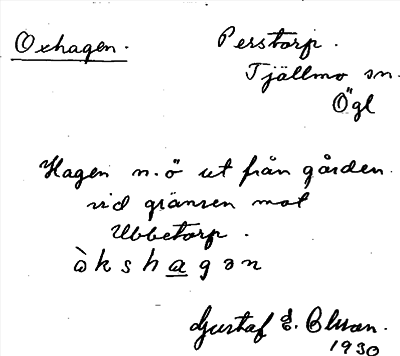 Oxhagen.
Perstorp.
Tjällmo sn.
Ögl
Hagen n.ö ut från gården
vid gränsen mot
Ubbetorp.
òkshagən
Gustaf E. Olsson.
1930